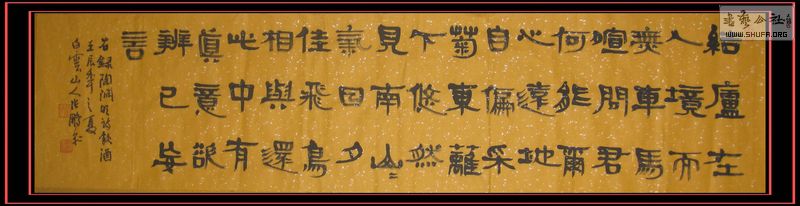 結廬在
人境而
無車馬
喧問君
何能爾
心遠地
自偏采
菊東籬
下悠然
見南山〻
氣日夕
佳飛鳥
相與還
此中有
真意欲
辨已忘
言
右錄陶淵明詩飲酒
壬辰年之夏
白雲山人
書藝公社
WWW.SHUFA.ORG